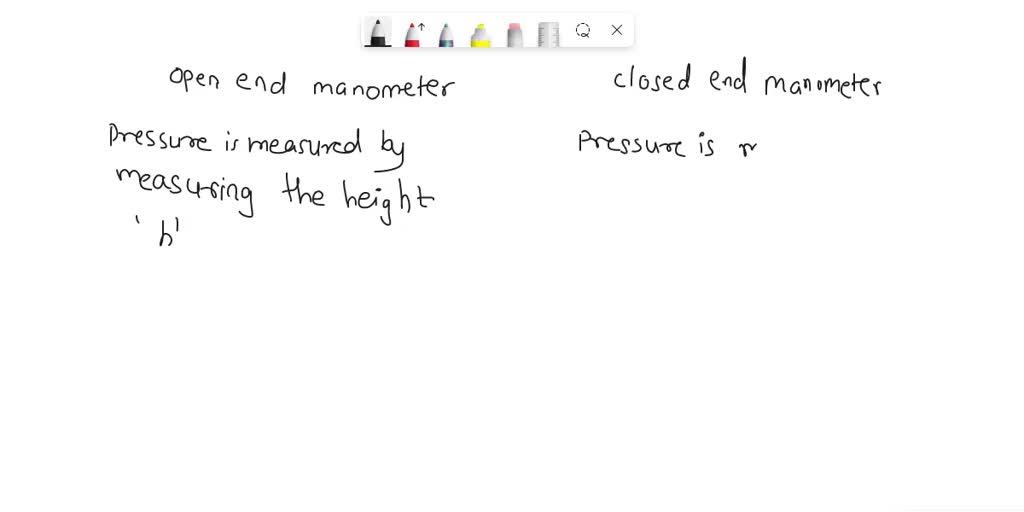 open end manometer
Pressure is measured by
measuring the height
'h'
closed end manometer
Pressure is m